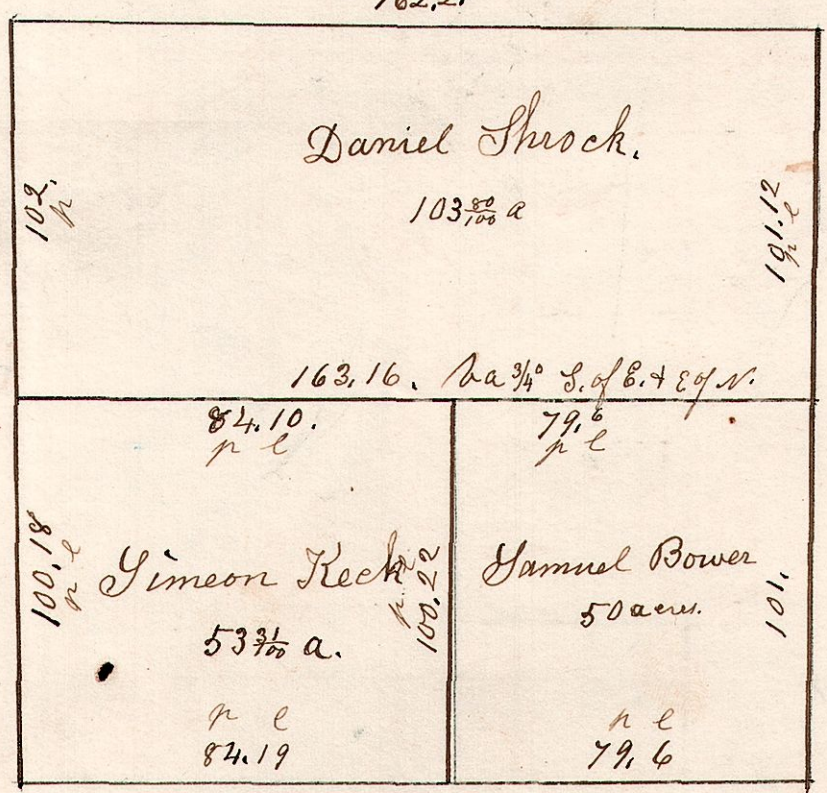 162.2.
Daniel Shrock.
103 80/100 a
102.
p
101.12
p l
163.16. Va 3/4° S. of E. & E of N.
84.10.
p l
79.6
p l
100.18
p l
Simeon Keck
53 31/100 a.
p l
100.22
Samuel Bower
50 acres.
101.
p l
84.19
p l
79.6